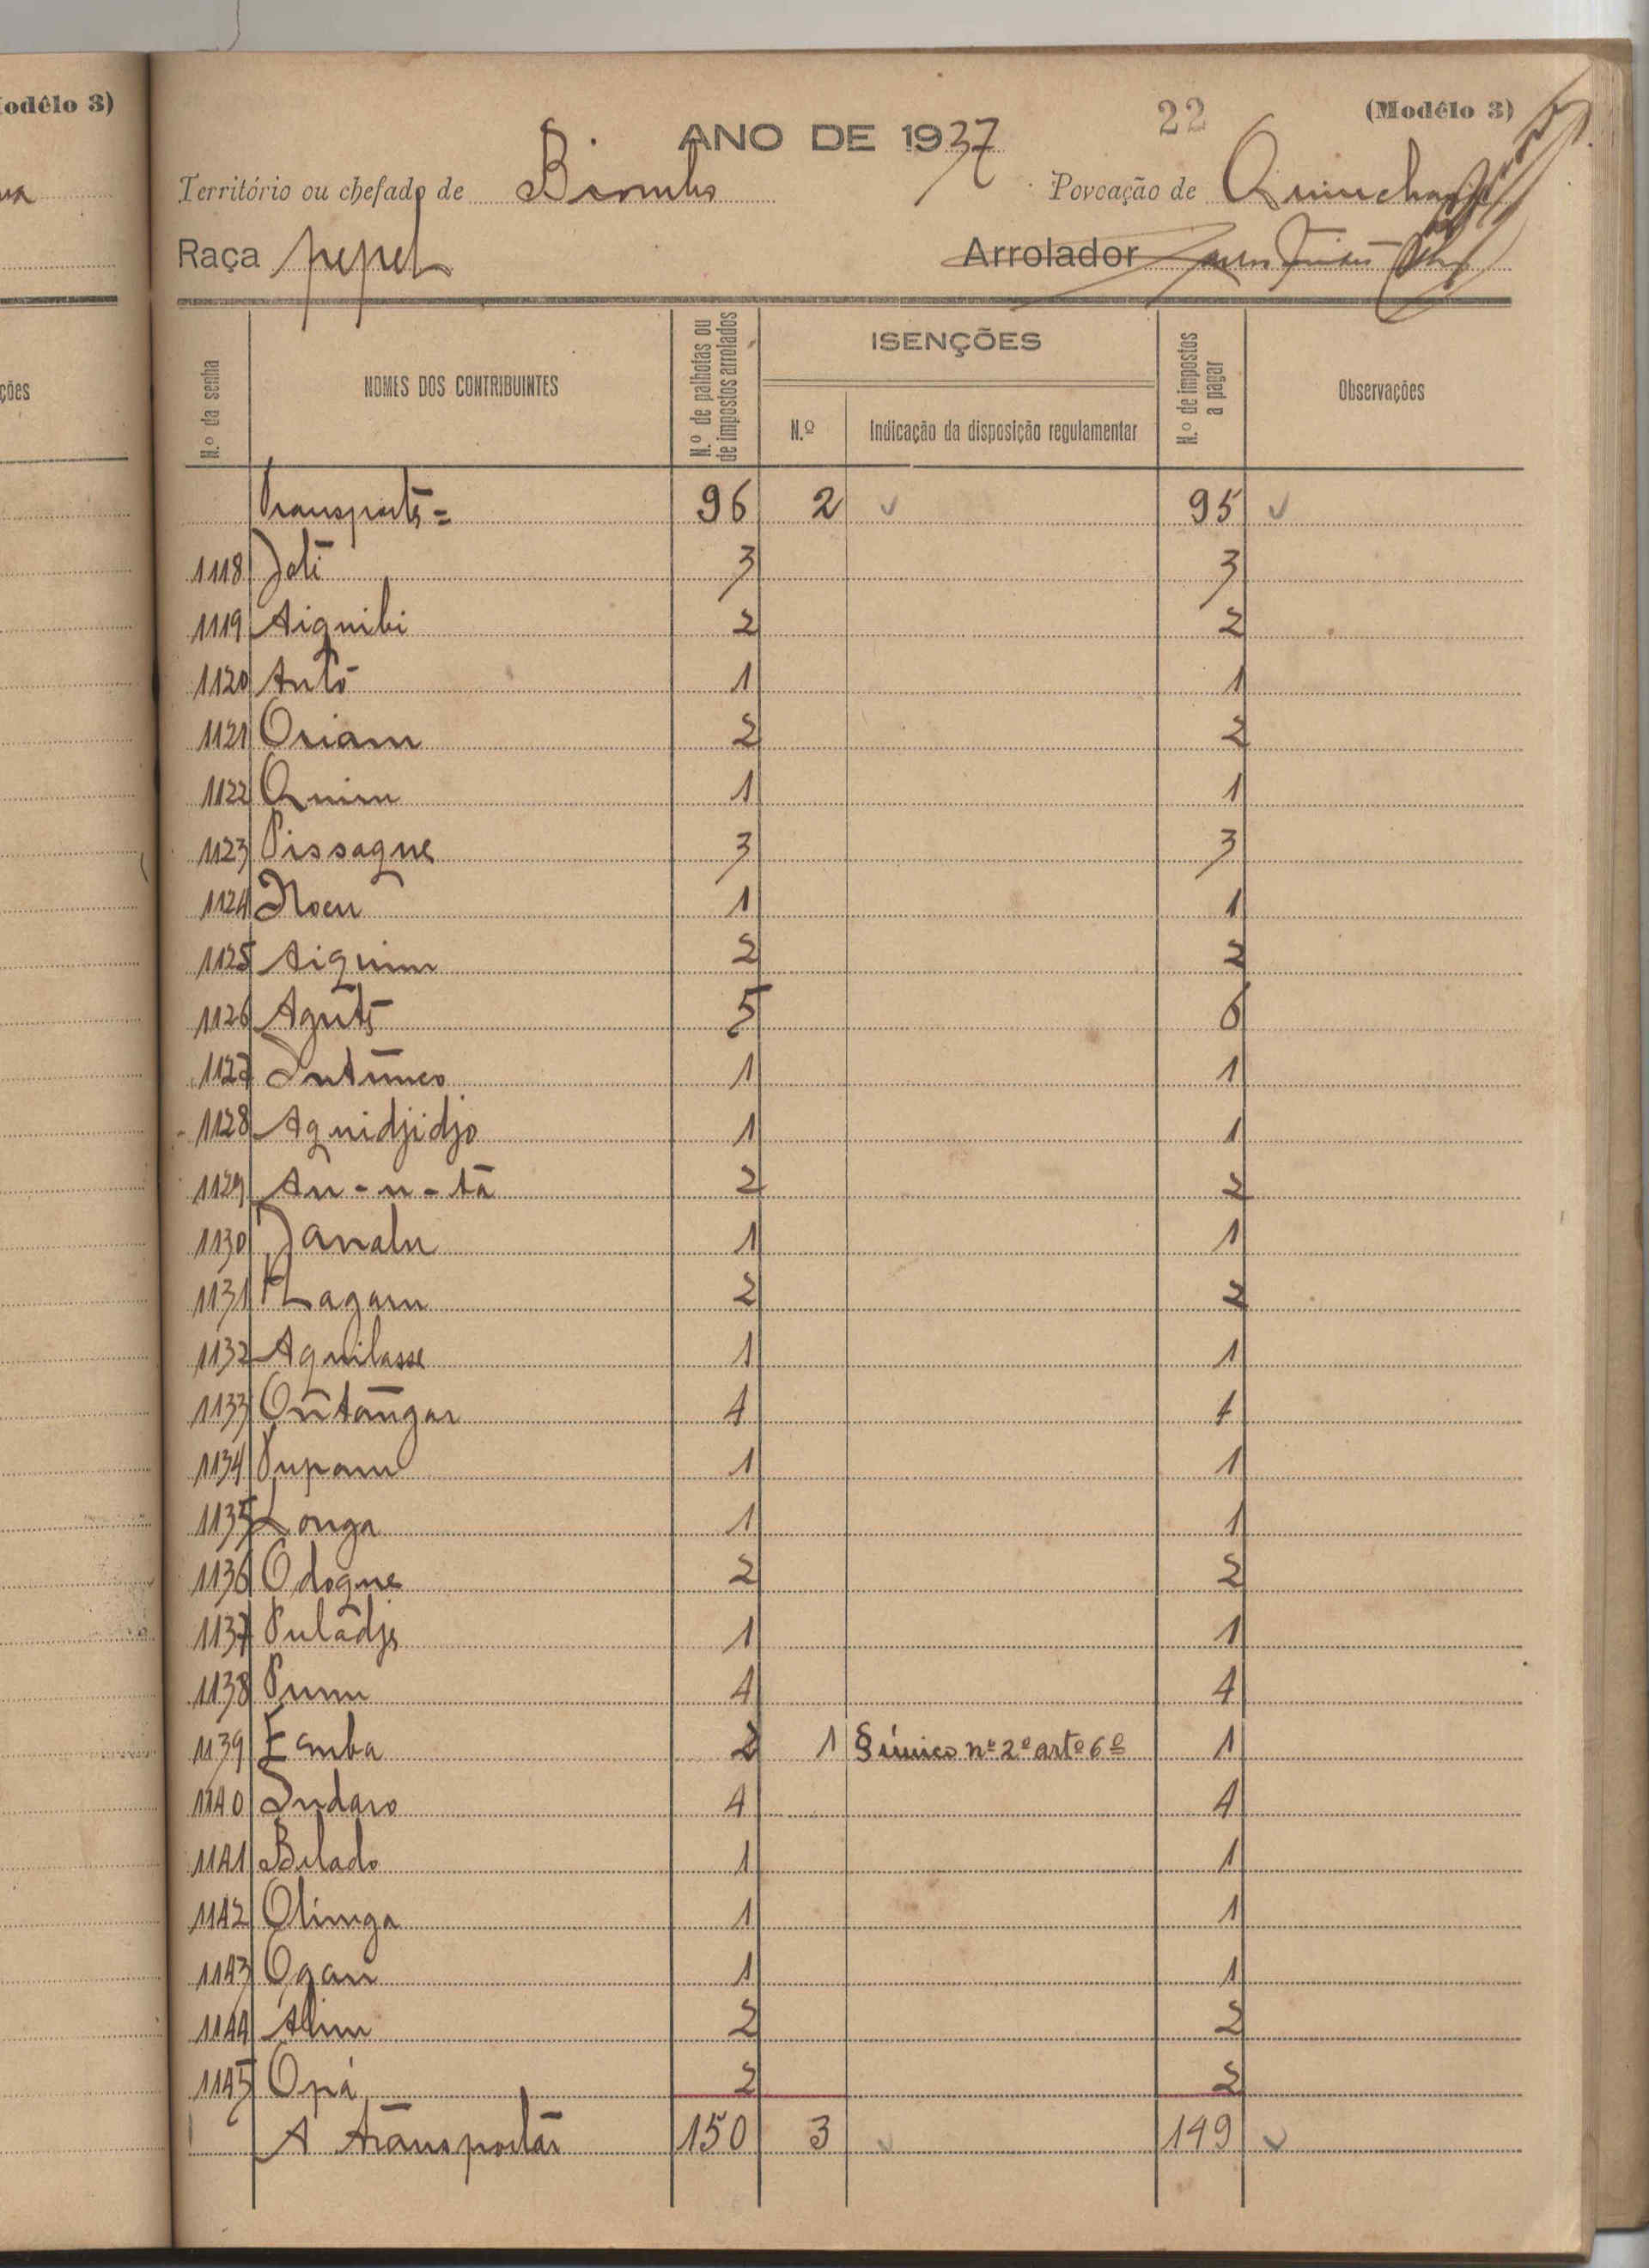 odêlo 3)
ções
22
(Modêlo 3)
ANO DE 1937
Território ou chefado de Biombo Povoação de
Raça pepel Arrolador
N.º da senha
NOMES DOS CONTRIBUINTES
N.º de palhotas ou de impostos arrolados
ISENÇÕES
N.º
Indicação da disposição regulamentar
N.º de impostos a pagar
Observações
Transporte = 96 2 95
1118 Joti 3 3
1119 Aiquibi 2 2
1120 Antó 1 1
1121 Oriam 2 2
1122 Quim 1 1
1123 Pissaque 3 3
1124 1 1
1125 Aiquim 2 2
1126 5 6
1127 1 1
1128 Aquidjidjo 1 1
1129 An-n-tá 2 2
1130 1 1
1131 2 2
1132 Aquilasse 1 1
1133 Ontangar 1 1
1134 Pupam 1 1
1135 Longa 1 1
1136 Odoque 2 2
1137 Puladje 1 1
1138 4 4
1139 2 1 § único nº 2º artº 6º 1
1140 Indaro 4 4
1141 Bilado 1 1
1142 Olinga 1 1
1143 Ogau 1 1
1144 Alim 2 2
1145 Opá 2 2
A transportar 150 3 149